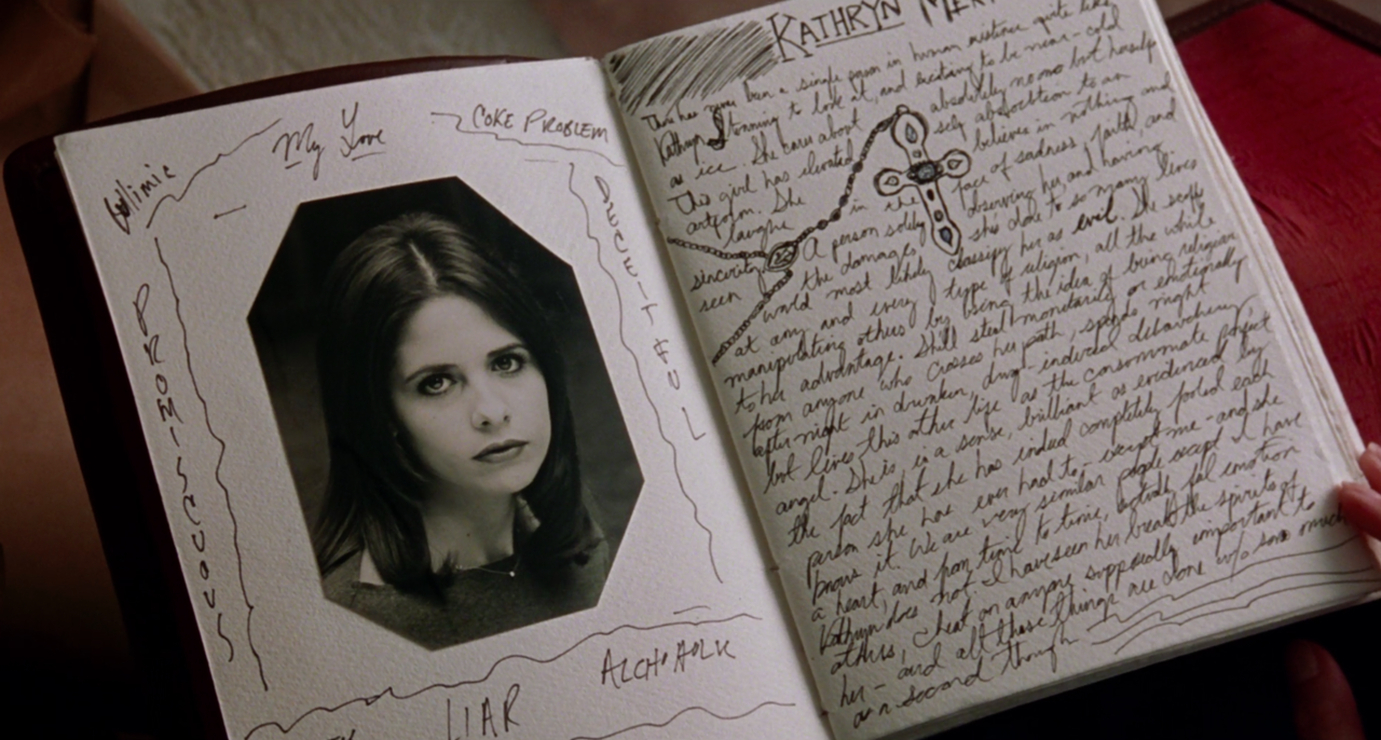 My Love
COKE PROBLEM
PROMISCUOUS
DECEITFUL
LIAR
KATHRYN
There has never been a single person in human existence quite like
Kathryn. Stunning to look at, and exciting to be near - cold
as ice. She cares about absolutely no one but herself
This girl has elevated self absorbtion to an
artform. She believes in nothing and
laughs in the face of sadness, faith, and
sincerity. A person solely observing her and having
seen the damages she's done to so many lives
would most likely classify her as evil. She scoffs
at any and every type of religion, all the while
manipulating others by using the idea of being religious
to her advantage. Shill steal monetarily or emotionally
from anyone who crosses her path, spends night
after night in drunken, drug induced debauchery
but lives this other life as the consommate perfect
angel. She is in a sense, brilliant as evidenced by
the fact that she has indeed completely fooled each
person she has ever had to - except me - and she
knows it. We are very similar people except I have
a heart, and from time to time, actually feel emotion
Kathryn does not. I have seen her break the spirits of
others, cheat on anyone supposedly important to
her - and all these things are done w/o so much
as a second though